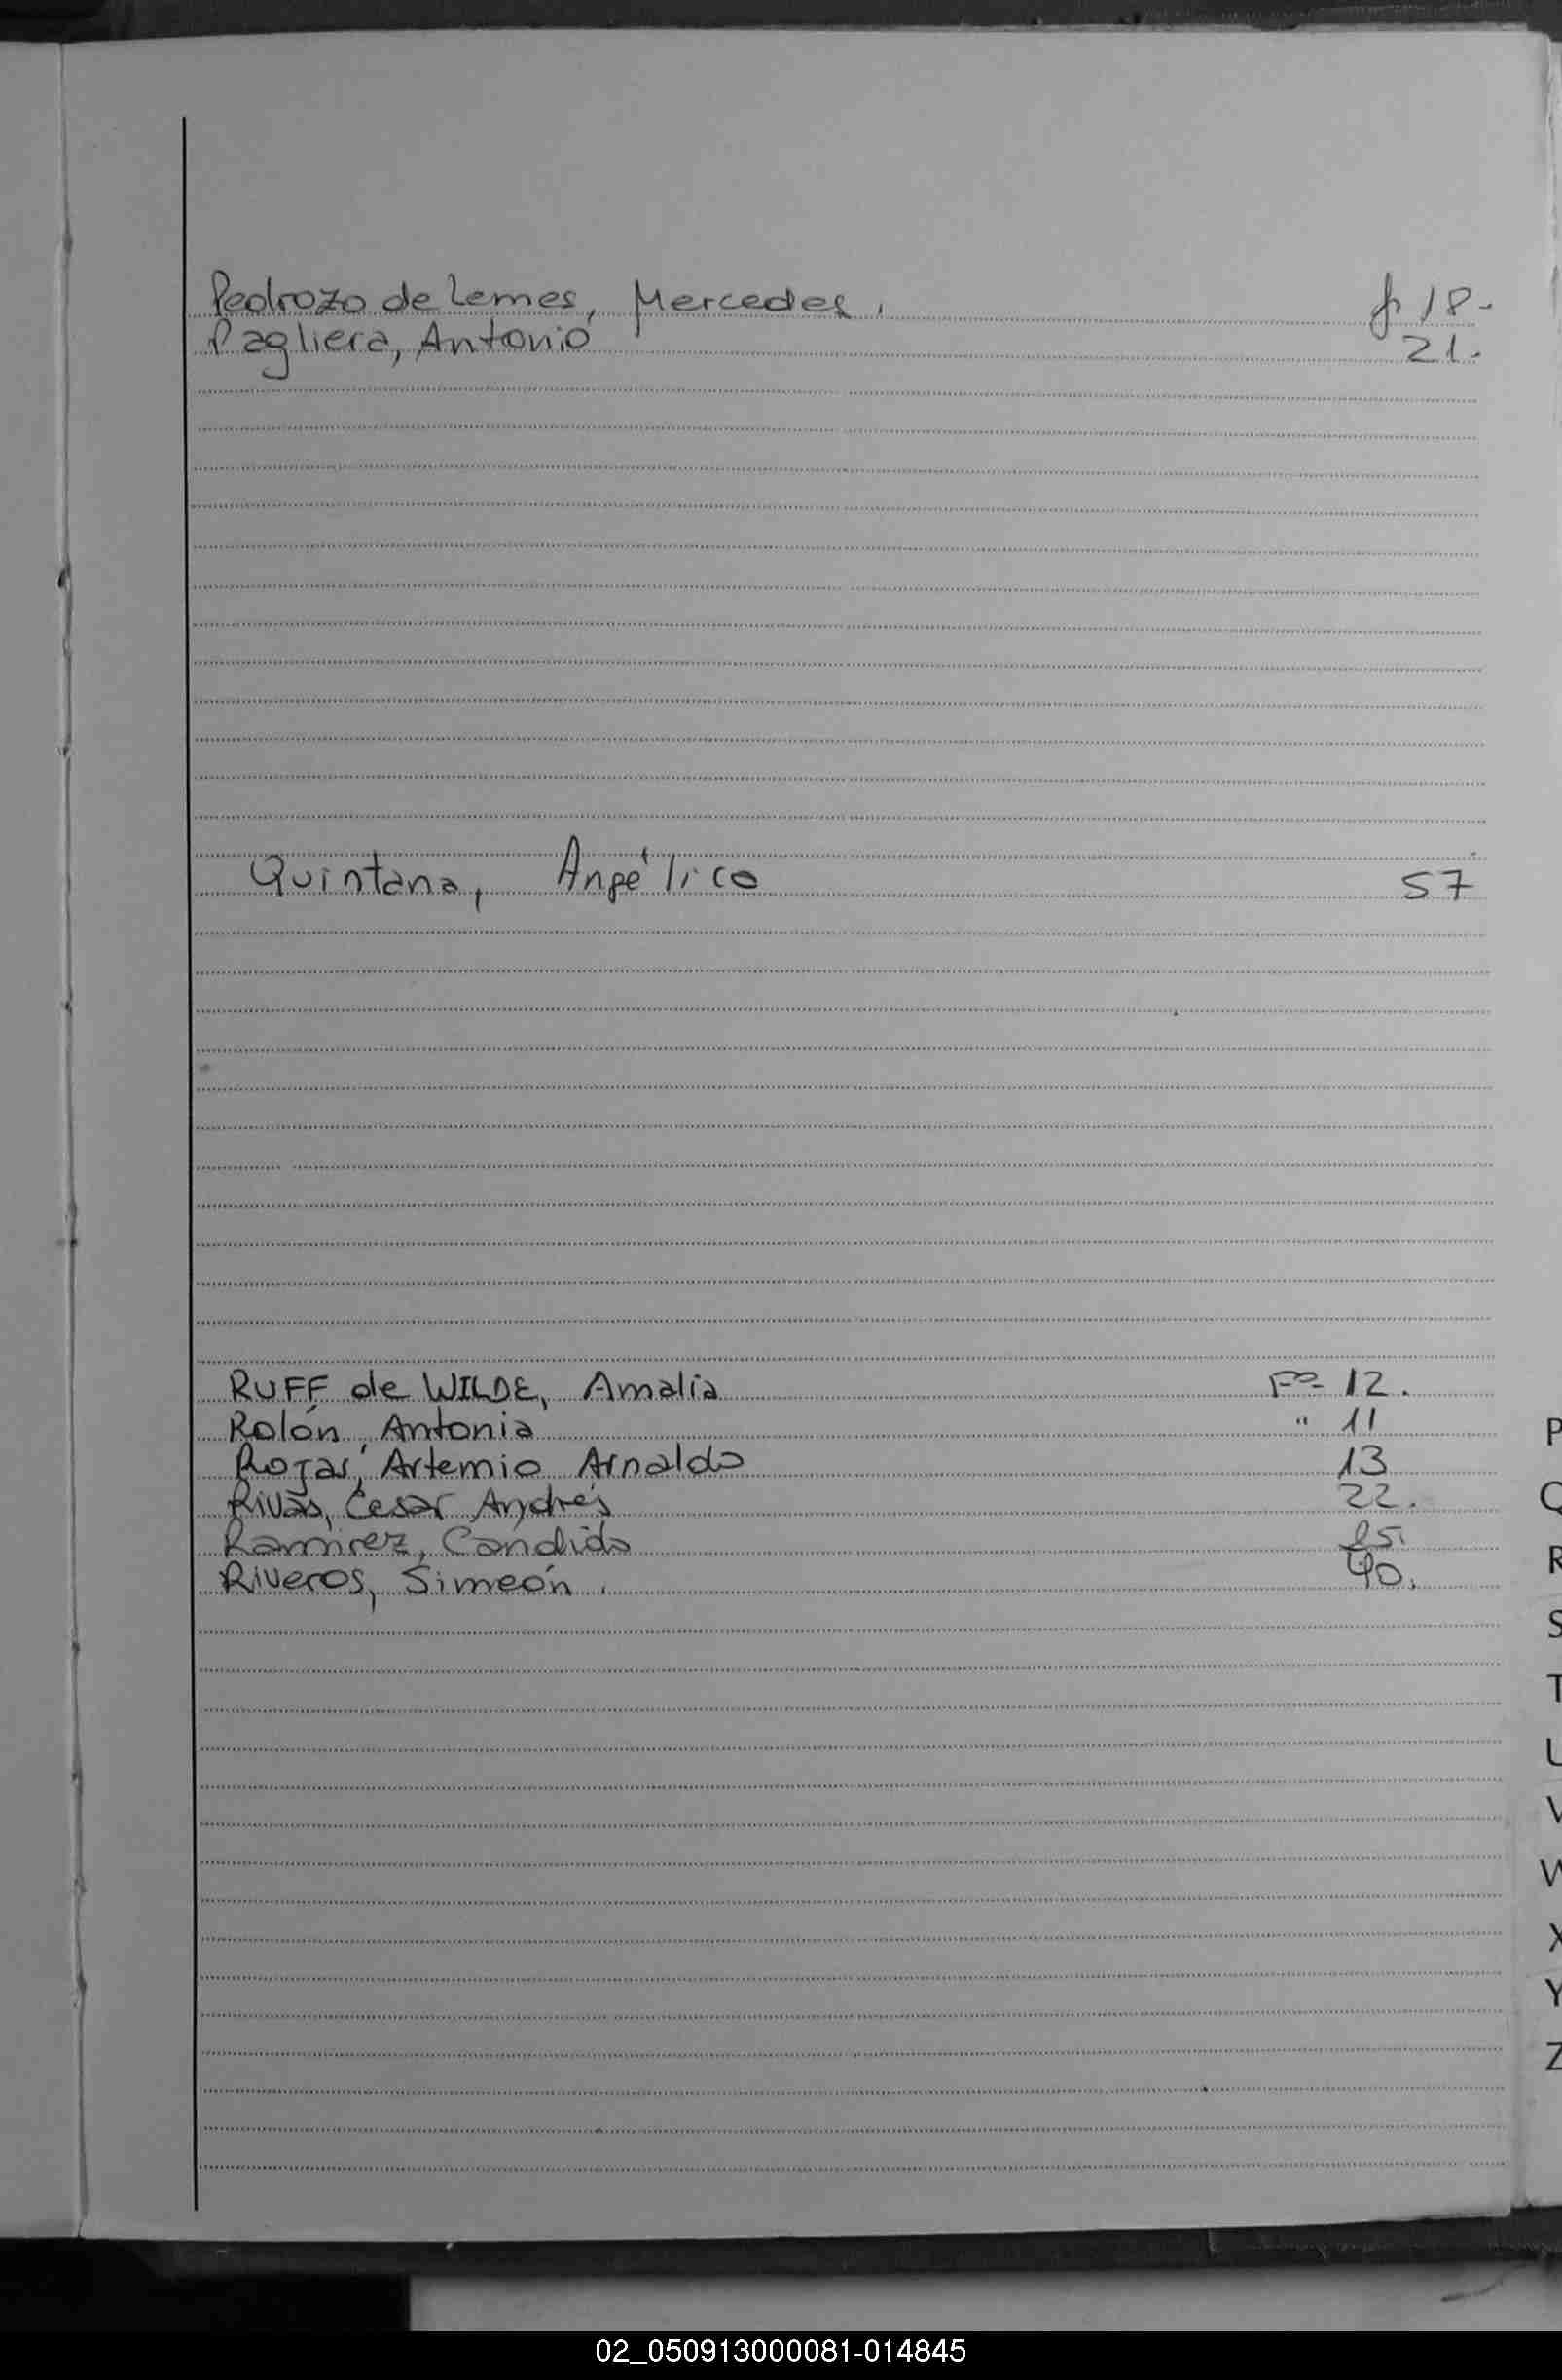 Pedrozo de Lemes, Mercedes. f. 18.
Pagliera, Antonio 21.
Quintana, Angélico 57
RUFF de WILDE, Amalia Fº 12.
Rolón, Antonia " 11
Rojas, Artemio Arnaldo 13
Rivas, Cesar Andrés 22.
Ramirez, Candido 25.
Riveros, Simeón. 40.
P
Q
R
S
T
U
V
W
X
Y
Z
02_050913000081-014845